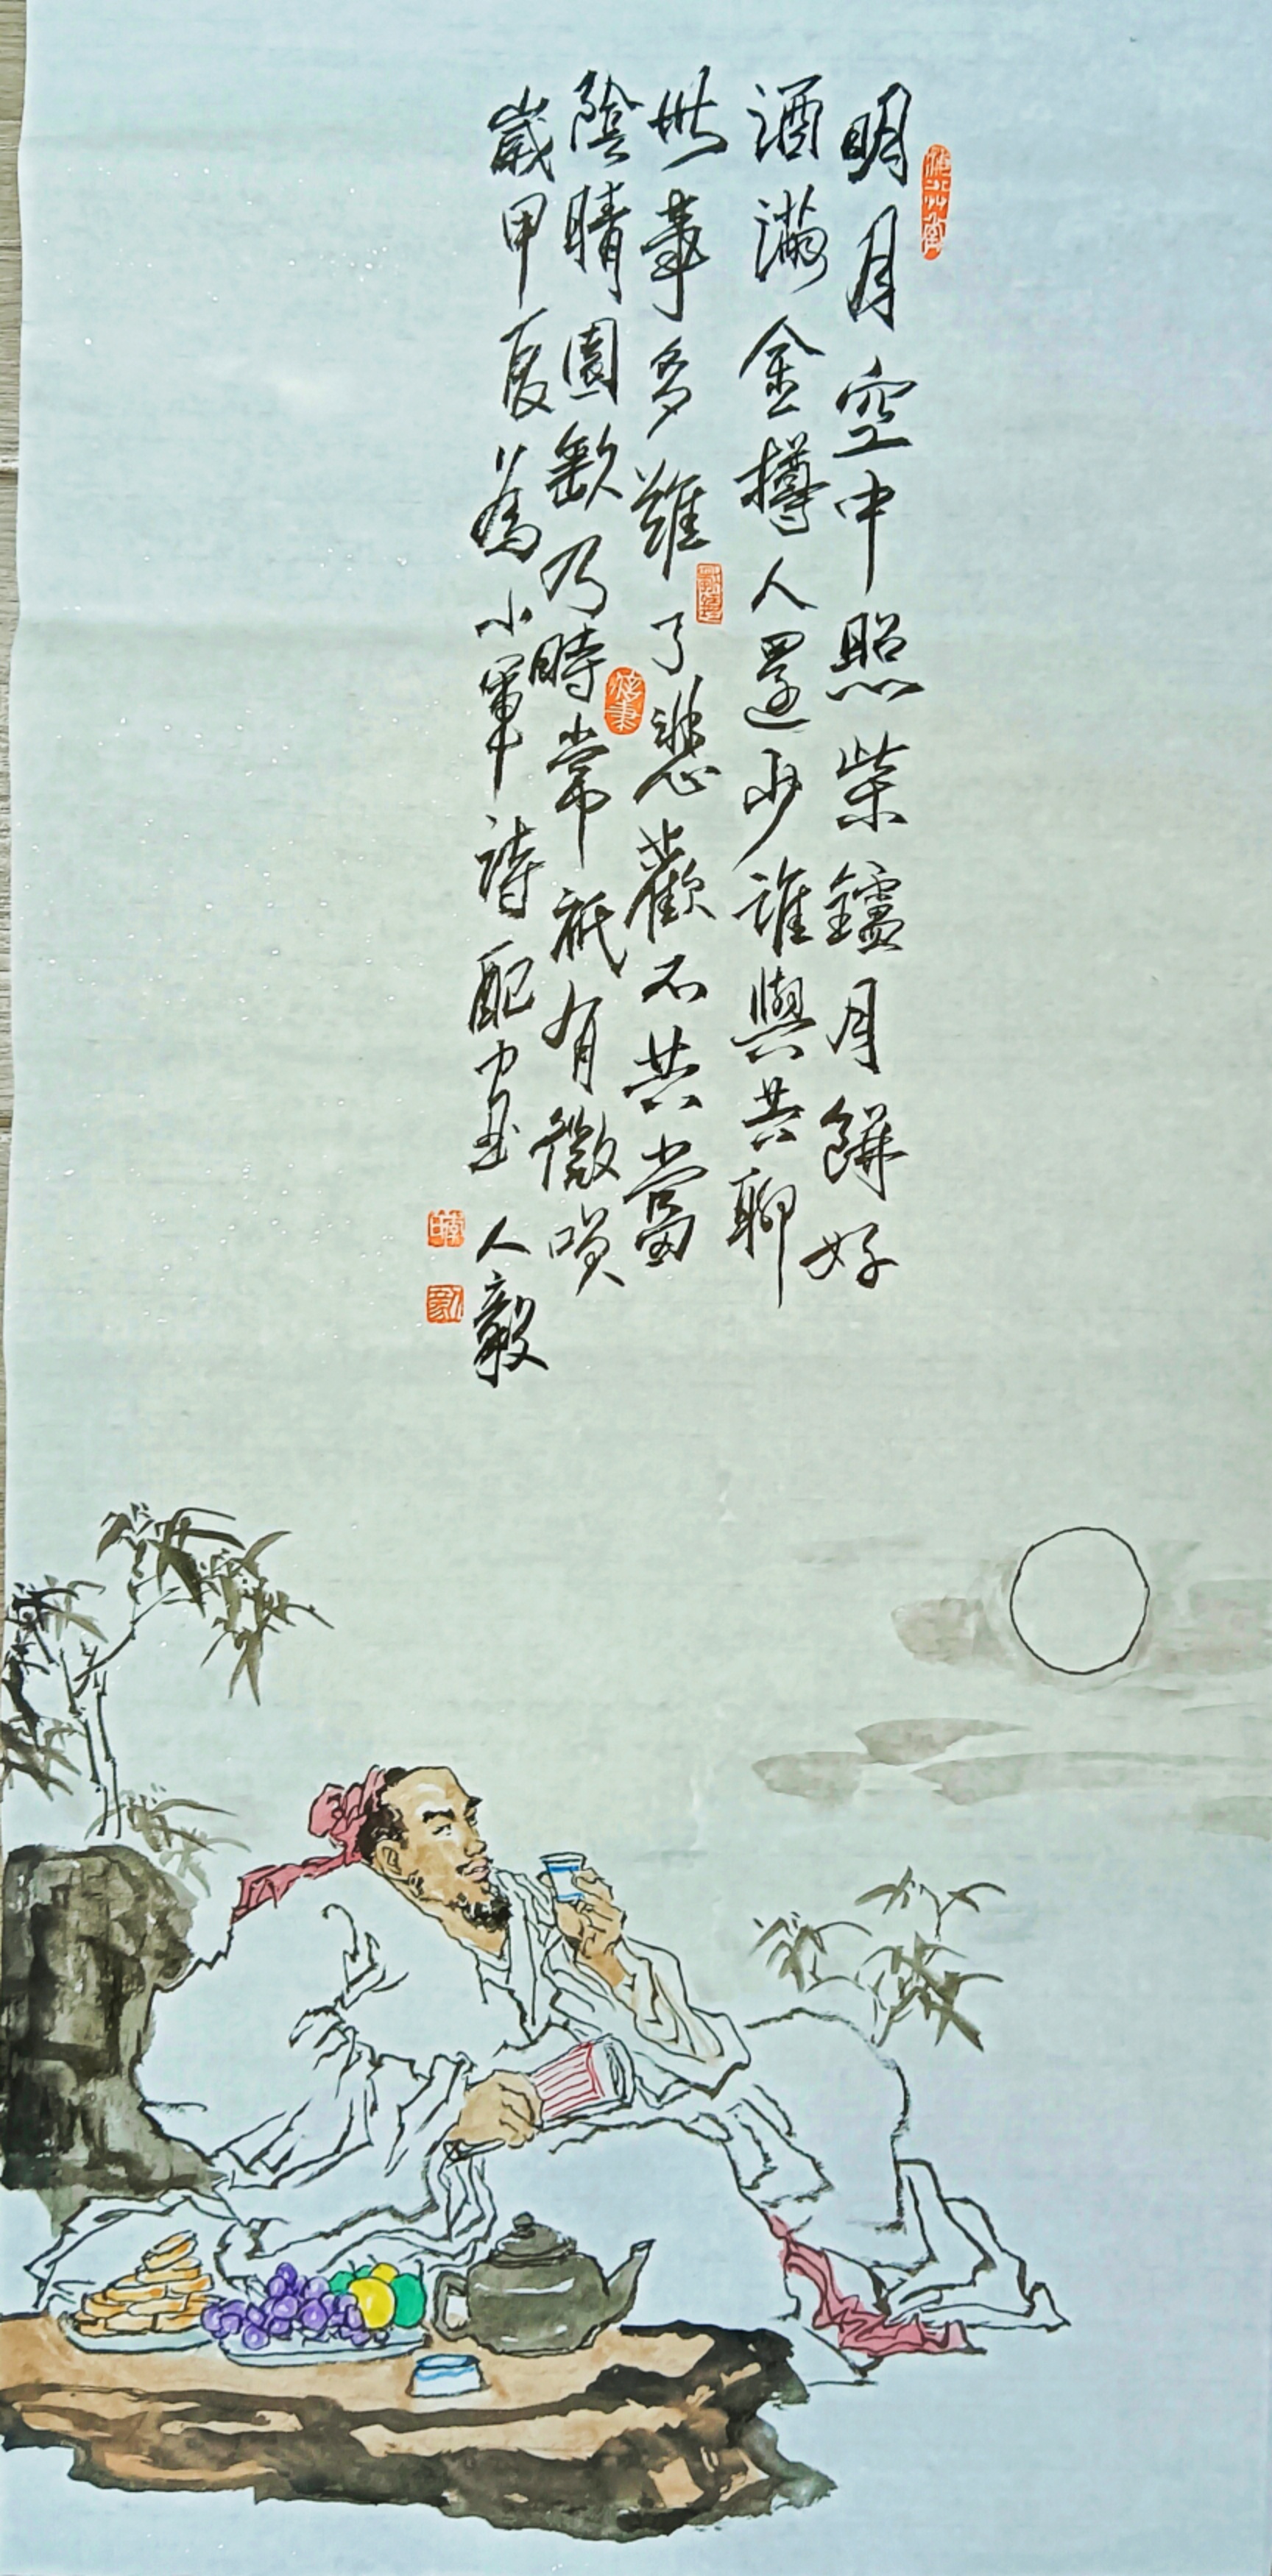 明月空中照柴鑪月餅好
酒滿金樽人還少誰與共聊
世事多難了悲歡不共當
陰晴圓缺乃時常祇有微咲
歲甲夏為小軍詩配畫 人毅